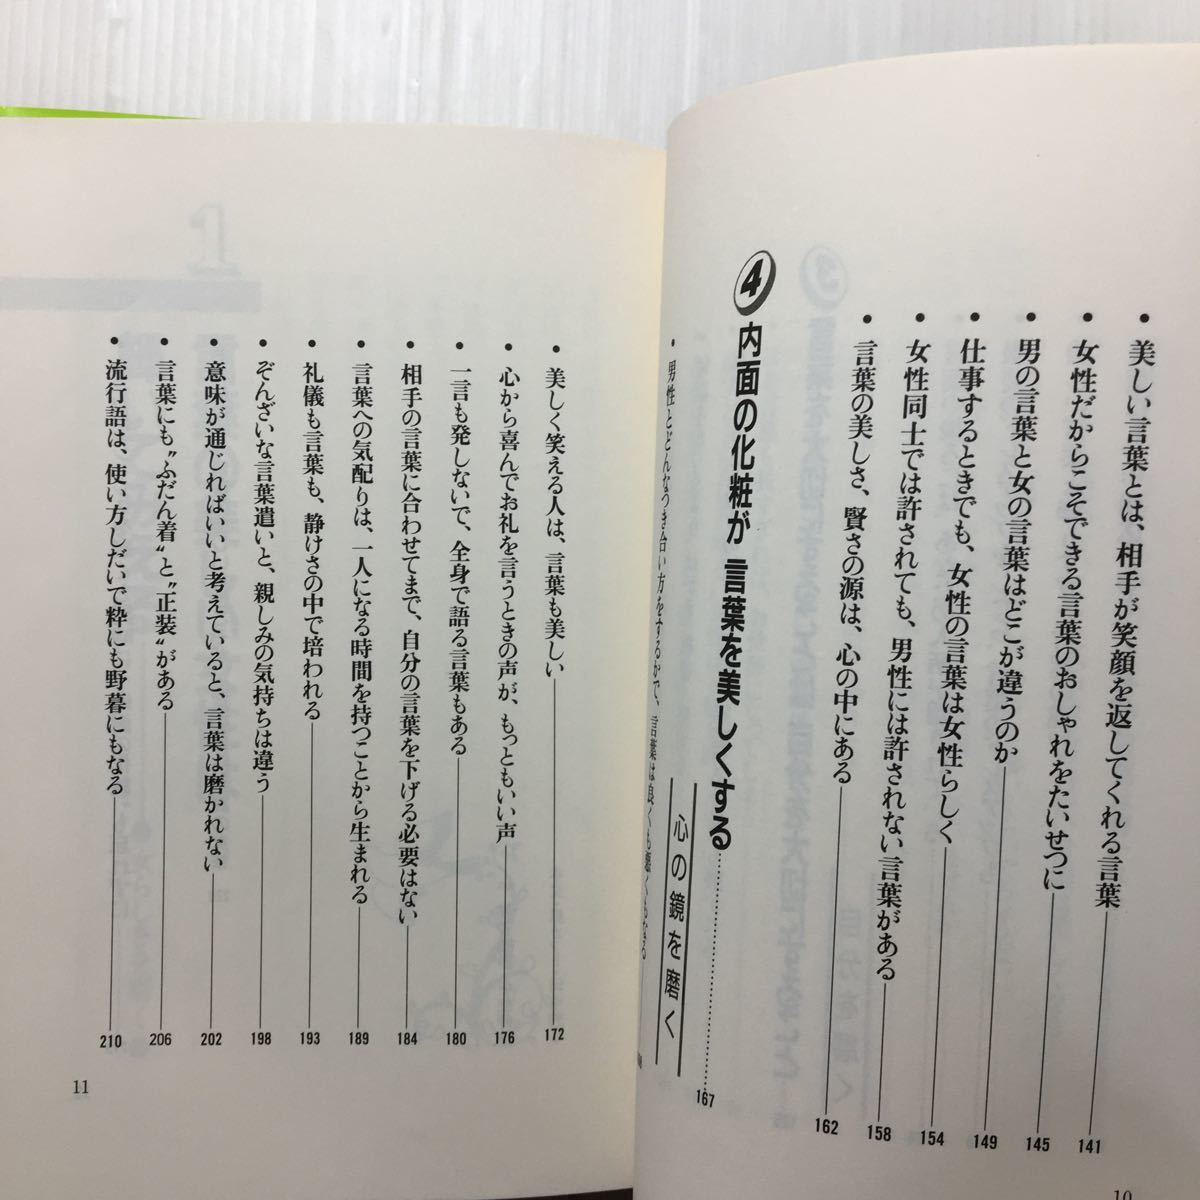 美しい言葉とは、相手が笑顔を返してくれる言葉 141
女性だからこそできる言葉のおしゃれをたいせつに 145
男の言葉と女の言葉はどこが違うのか 149
仕事するときでも、女性の言葉は女性らしく 154
女性同士では許されても、男性には許されない言葉がある 158
言葉の美しさ、賢さの源は、心の中にある 162
4 内面の化粧が 言葉を美しくする 167
心の鏡を磨く
男性とどんなつき合い方をするかで、言葉は良くも悪くもなる
10
美しく笑える人は、言葉も美しい 172
心から喜んでお礼を言うときの声が、もっともいい声 176
一言も発しないで、全身で語る言葉もある 180
相手の言葉に合わせてまで、自分の言葉を下げる必要はない 184
言葉への気配りは、一人になる時間を持つことから生まれる 189
礼儀も言葉も、静けさの中で培われる 193
ぞんざいな言葉遣いと、親しみの気持ちは違う 198
意味が通じればいいと考えていると、言葉は磨かれない 202
言葉にも〝ふだん着〟と〝正装〟がある 206
流行語は、使い方しだいで粋にも野暮にもなる 210
11